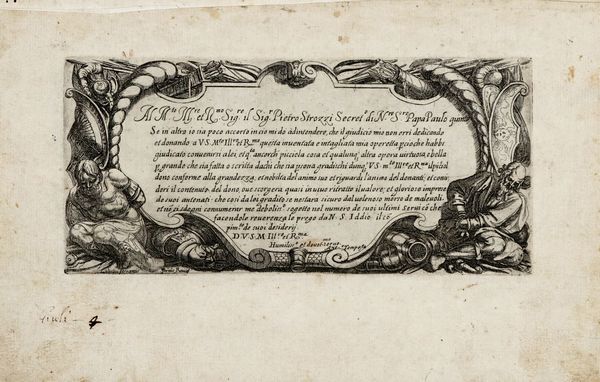 Al M.to Ill.re et R.mo Sig.re il Sig.r Pietro Strozzi Secret.o di N.ro S.re Papa Paulo quinto
Se in altro io sia poco accerto in cio mi do à intendere, che il giudicio mio non erri dedicando
et donando a V.S. M.to Ill.re et R.ma questa inuentata e intagliata mia operetta percioche habbi
giudicato conuenirsi a lei et q.ta ancorch picciola cosa et qualunq' altra opera virtuosa e bella
grande che sia fatta o scritta da chi che sia prima gradischi V.S. m.to Ill.re et R.ma il picciol
dono conforme alla grandezza, et nobilta del animo suo et riguardi l'animo del donante; et consi
deri il contenuto del dono, oue scorgera quasi in uiuo ritratto il ualore; et gloriose imprese
de suoi antenati: che cosi da lei gradito se nestara sicuro dal uelenoso morso de maleuoli
et nō si sdegni connumerar me deboliss.o sogetto nel numero de suoi ultimi serui cō che
facendole reuerenza le prego da N. S. Iddio il cō
pim.to de suoi desiderij
D.V.S. M. Ill.re et R.ma
Humiliss.o et deuot.mo seruo
Ant.o Tempesta